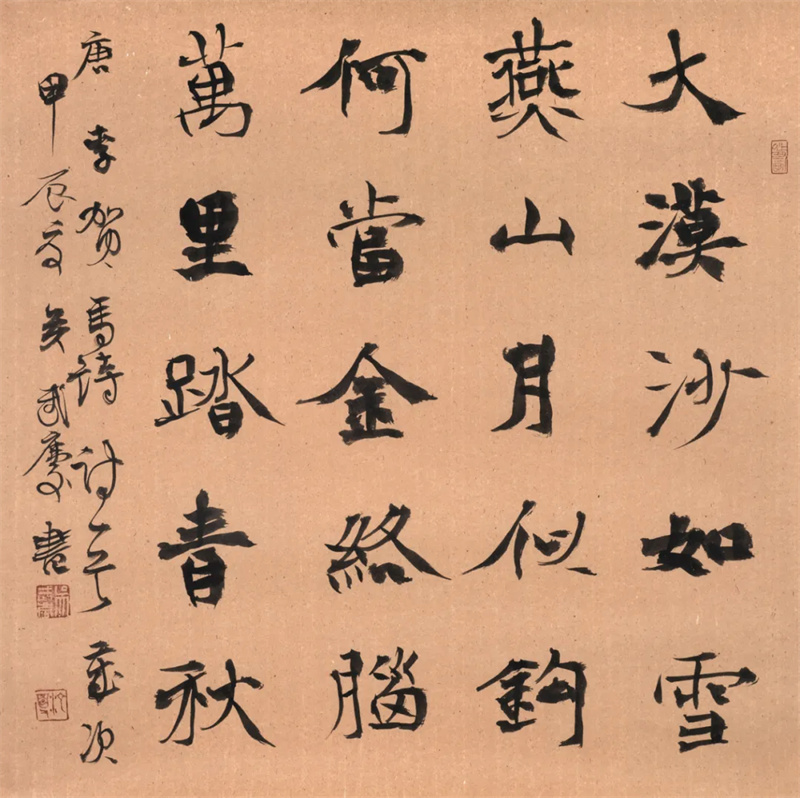 大漠沙如雪
燕山月似鉤
何當金絡腦
萬里踏青秋
唐李賀馬詩一首歲次
甲辰夏吳武慶書